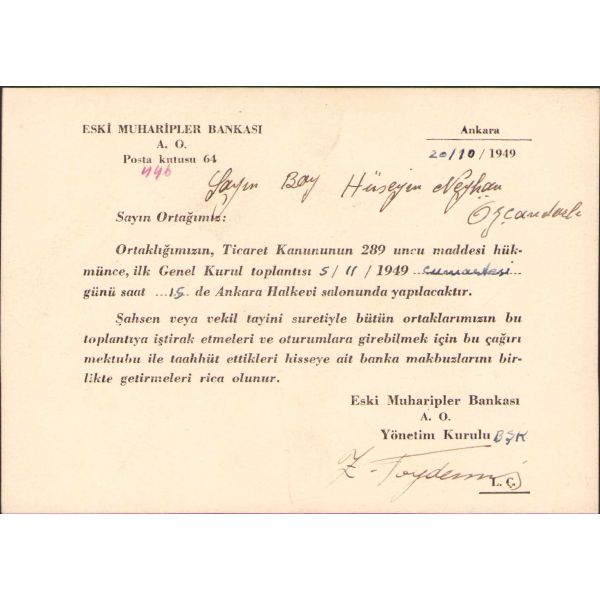 ESKİ MUHARİPLER BANKASI
A. O.
Posta kutusu 64
446
Ankara
20/10/1949
Sayın Bay Hüseyin
Sayın Ortağımız:
Ortaklığımızın, Ticaret Kanununun 289 uncu maddesi hük-
münce, ilk Genel Kurul toplantısı 5/11/1949 ..cumartesi..
günü saat ...15.. de Ankara Halkevi salonunda yapılacaktır.
Şahsen veya vekil tayini suretiyle bütün ortaklarımızın bu
toplantıya iştirak etmeleri ve oturumlara girebilmek için bu çağırı
mektubu ile taahhüt ettikleri hisseye ait banka makbuzlarını bir-
likte getirmeleri rica olunur.
Eski Muharipler Bankası
A. O.
Yönetim Kurulu BŞK
L. Ç.